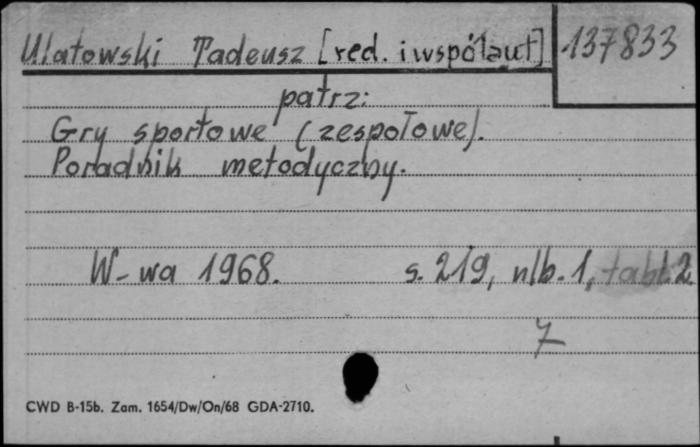 Ulatowski Tadeusz [red. i współaut] 137833
patrz:
Gry sportowe (zespołowe).
Poradnik metodyczny.
W-wa 1968. s. 219, nlb. 1, tabl. 2
7
CWD B-15b. Zam. 1654/Dw/On/68 GDA-2710.